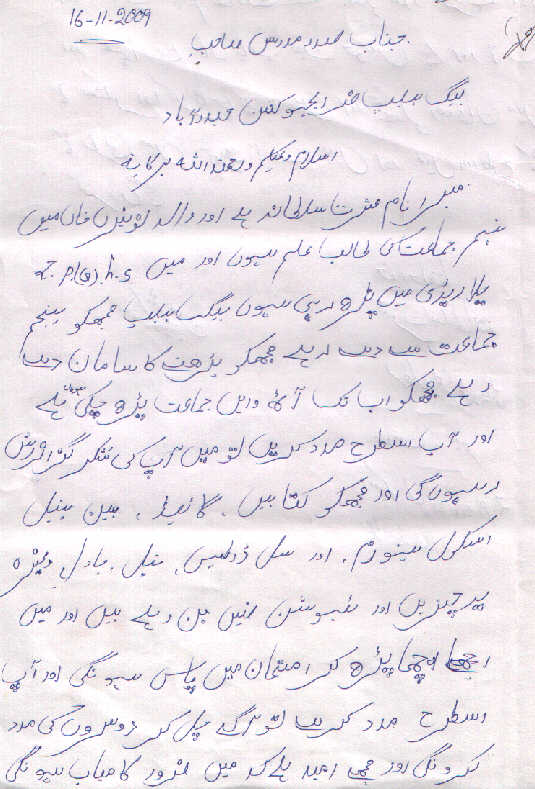 16-11-2009
جناب صدر مدرس صاحب
بیگ ہیلپ فار ایجوکیشن حیدرآباد
اسلام وعلیکم ورحمتہ اللہ برکاتہ
میرا نام عشرت سلطانہ ہے اور والد خان میں
پنجم جماعت کی طالب علم ہوں اور میں z.p.h.s
میں پڑھ رہی ہوں بیگ ہیلپ مجھکو پنجم
جماعت سے دے رہے مجھکو پڑھنے کا سامان دے
رہے مجھکو اب تک آٹھ ویں جماعت پڑھ چکی ہے
اور آپ اسطرح مدد کریں تو میں آپ کی شکر گزار
رہوں گی اور مجھکو کتابیں، گائیڈ، پین پنسل
اسکول یینورم، اور سل ڈرلیس، پنل، بادل وغیرہ
یہ چیزیں اور ٹیوشن فیس بھی دے رہے ہیں اور میں
اچھا اچھا پڑھ کر امتحان میں پاس ہونگی اور آپ
اسطرح مدد کرے تو آگے چل کر دوسروں کی مدد
کرونگی اور مجھے امید ہے کہ میں ضرور کامیاب ہونگی